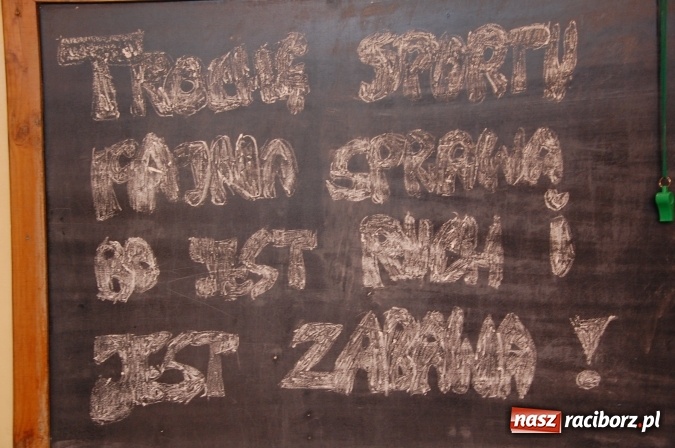 TROCHĘ SPORTU
FAJNA SPRAWA
BO JEST RUCH i
JEST ZABAWA!
nasz raciborz.pl